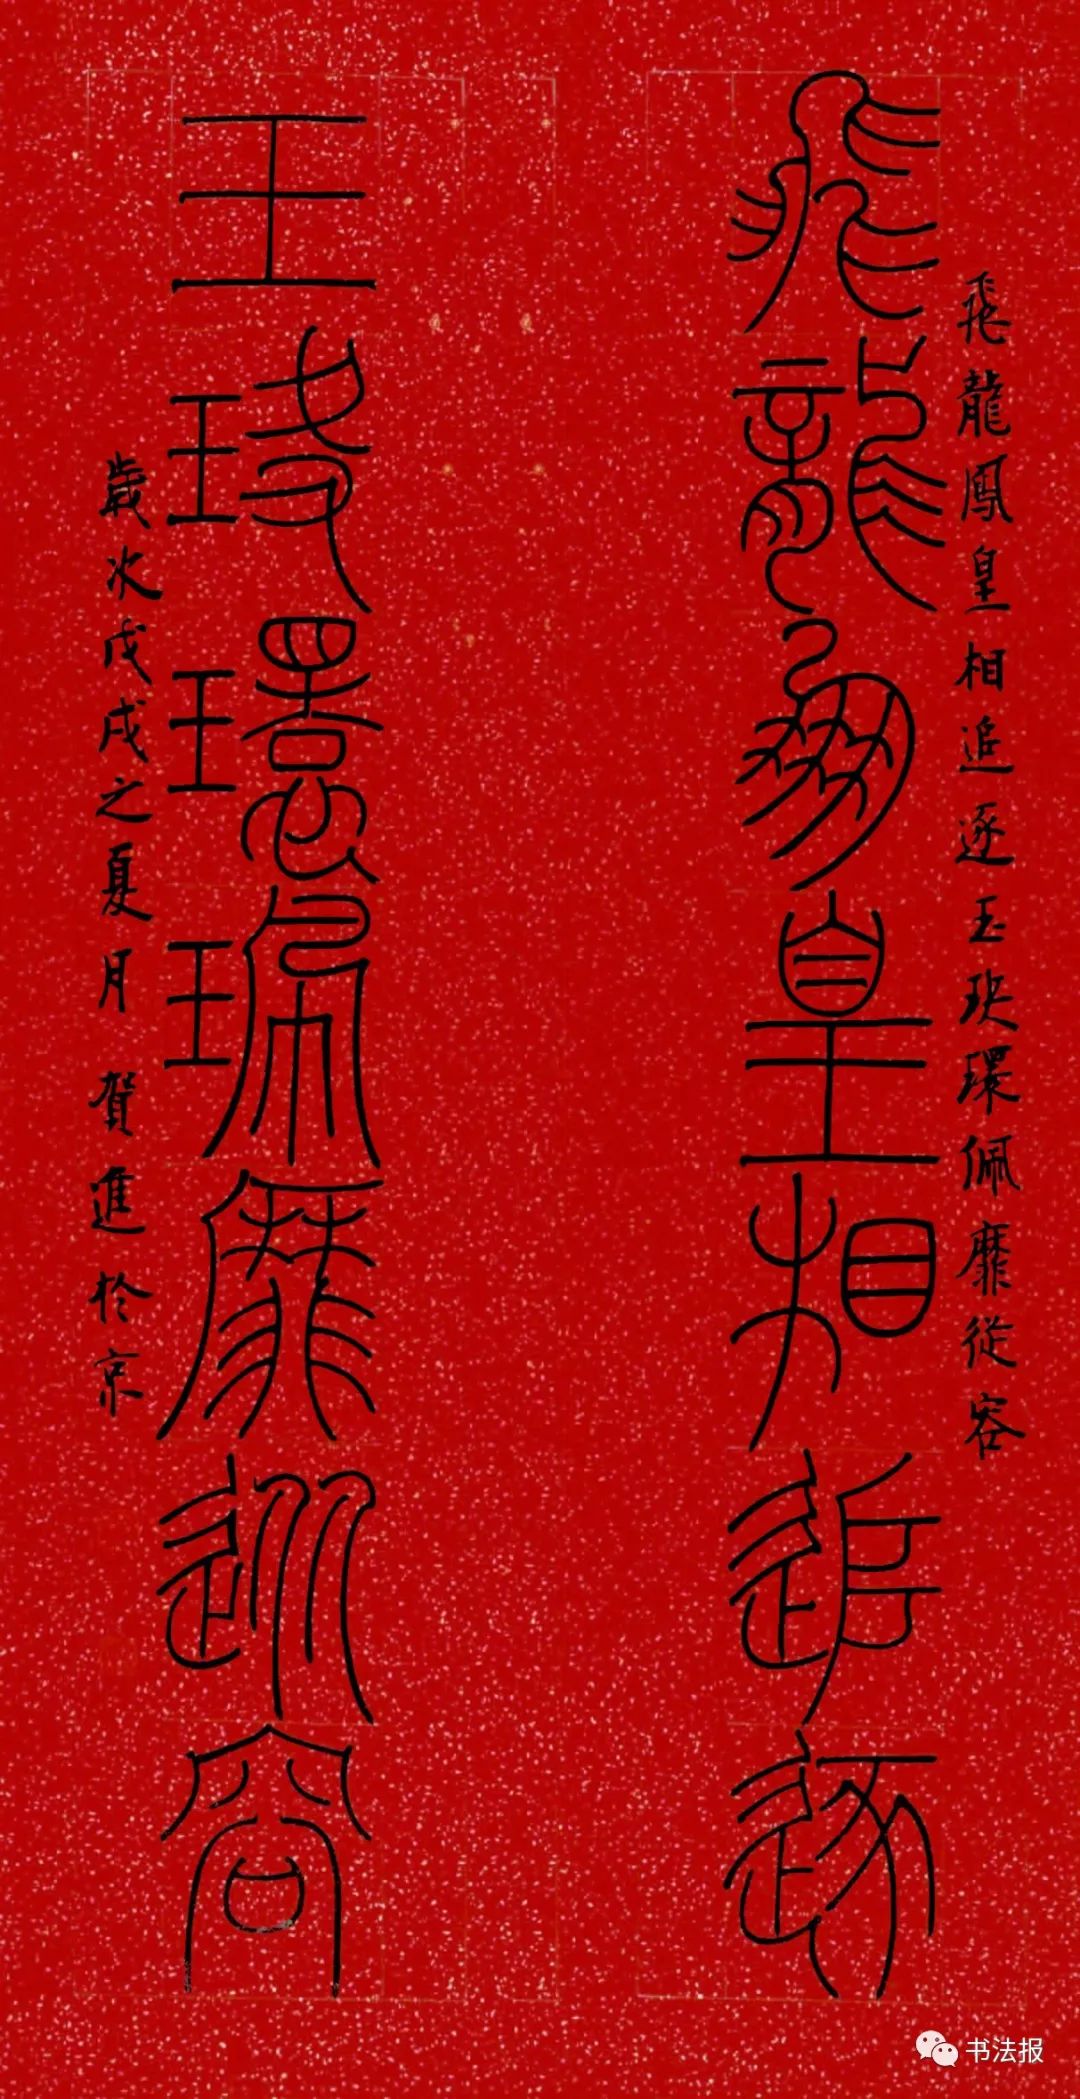 飛龍鳳皇相追逐玉玦環佩靡從容
飛龍鳳皇相追逐
玉玦環珮靡從容
歲次戊戌之夏月 賀進於京
书法报